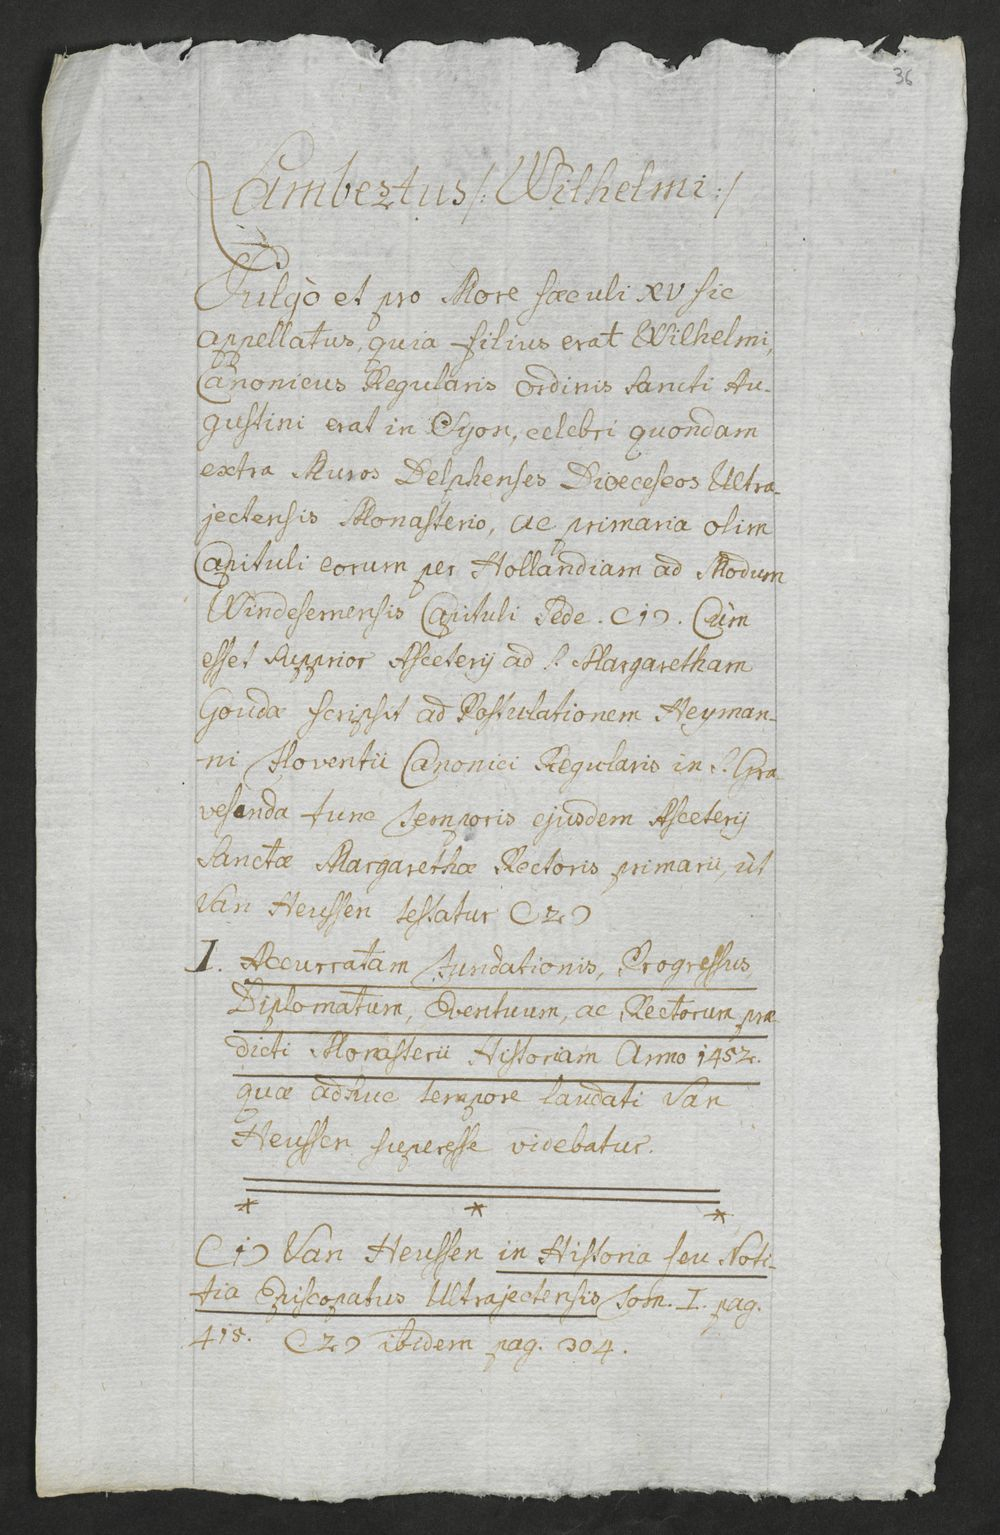 36
Lambertus /: Wilhelmi :/
Vulgò et pro More sæculi XV sic
appellatus, quia filius erat Wilhelmi,
Canonicus Regularis Ordinis Sancti Au-
gustini erat in Syon, celebri quondam
extra Muros Delphenses Dioeceseos Ultra-
jectensis Monasterio, ac primaria olim
Capituli eorum per Hollandiam ad Modum
Windesemensis Capituli Sede. (1). Cùm
esset Supprior Asceterij ad S. Margaretham
Goudæ scripsit ad Postulationem Heyman-
-ni Florentii Canonici Regularis in S. Gra-
vesanda tunc temporis ejusdem Asceterij
Sanctæ Margarethæ Rectoris primarii, ùt
Van Heussen testatur (2)
I. Accuratam fundationis, Progressus,
Diplomatum, Eventuum, ac Rectorum præ-
dicti Monasterii Historiam Anno 1452.
quæ adhuc tempore laudati Van
Heussen superesse videbatur.
* * *
(1) Van Heussen in Historia seu Noti-
tia Episcopatus Ultrajectensis Tom. I. pag.
415. (2) ibidem pag. 304.